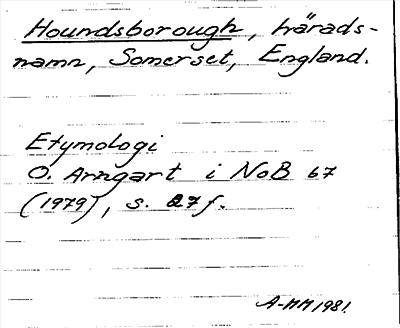 Houndsborough, härads-
namn, Somerset, England.
Etymologi
O. Arngart i NoB 67
(1979), s. 27f.
A-MM 1981.